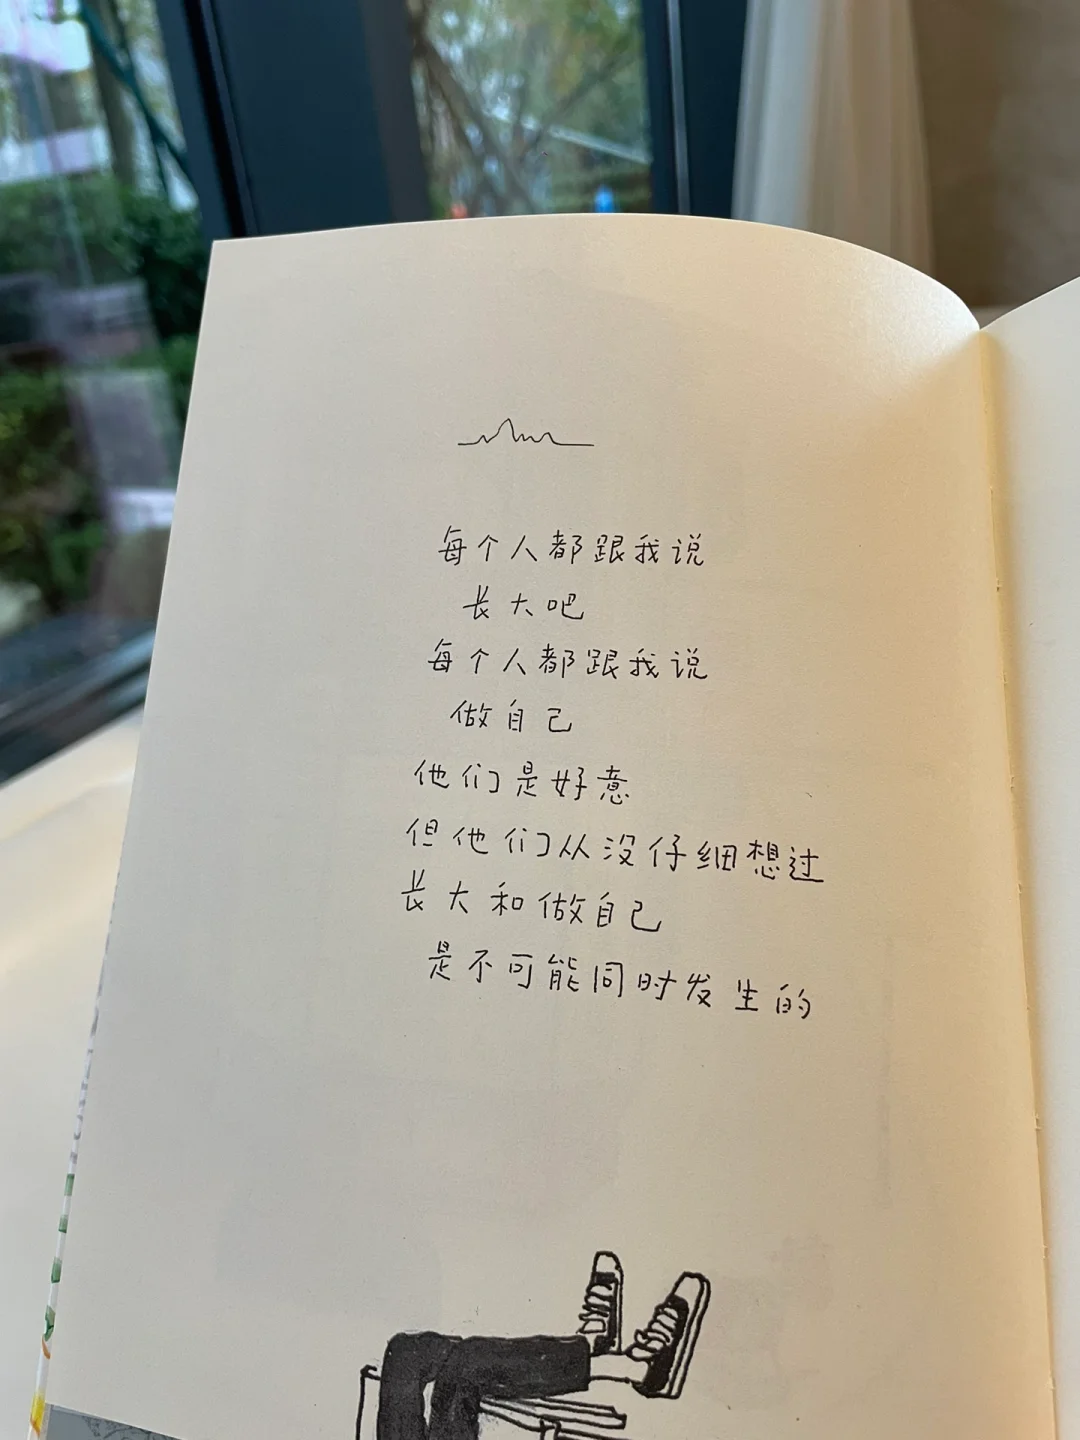 每个人都跟我说
长大吧
每个人都跟我说
做自己
他们是好意
但他们从没仔细想过
长大和做自己
是不可能同时发生的